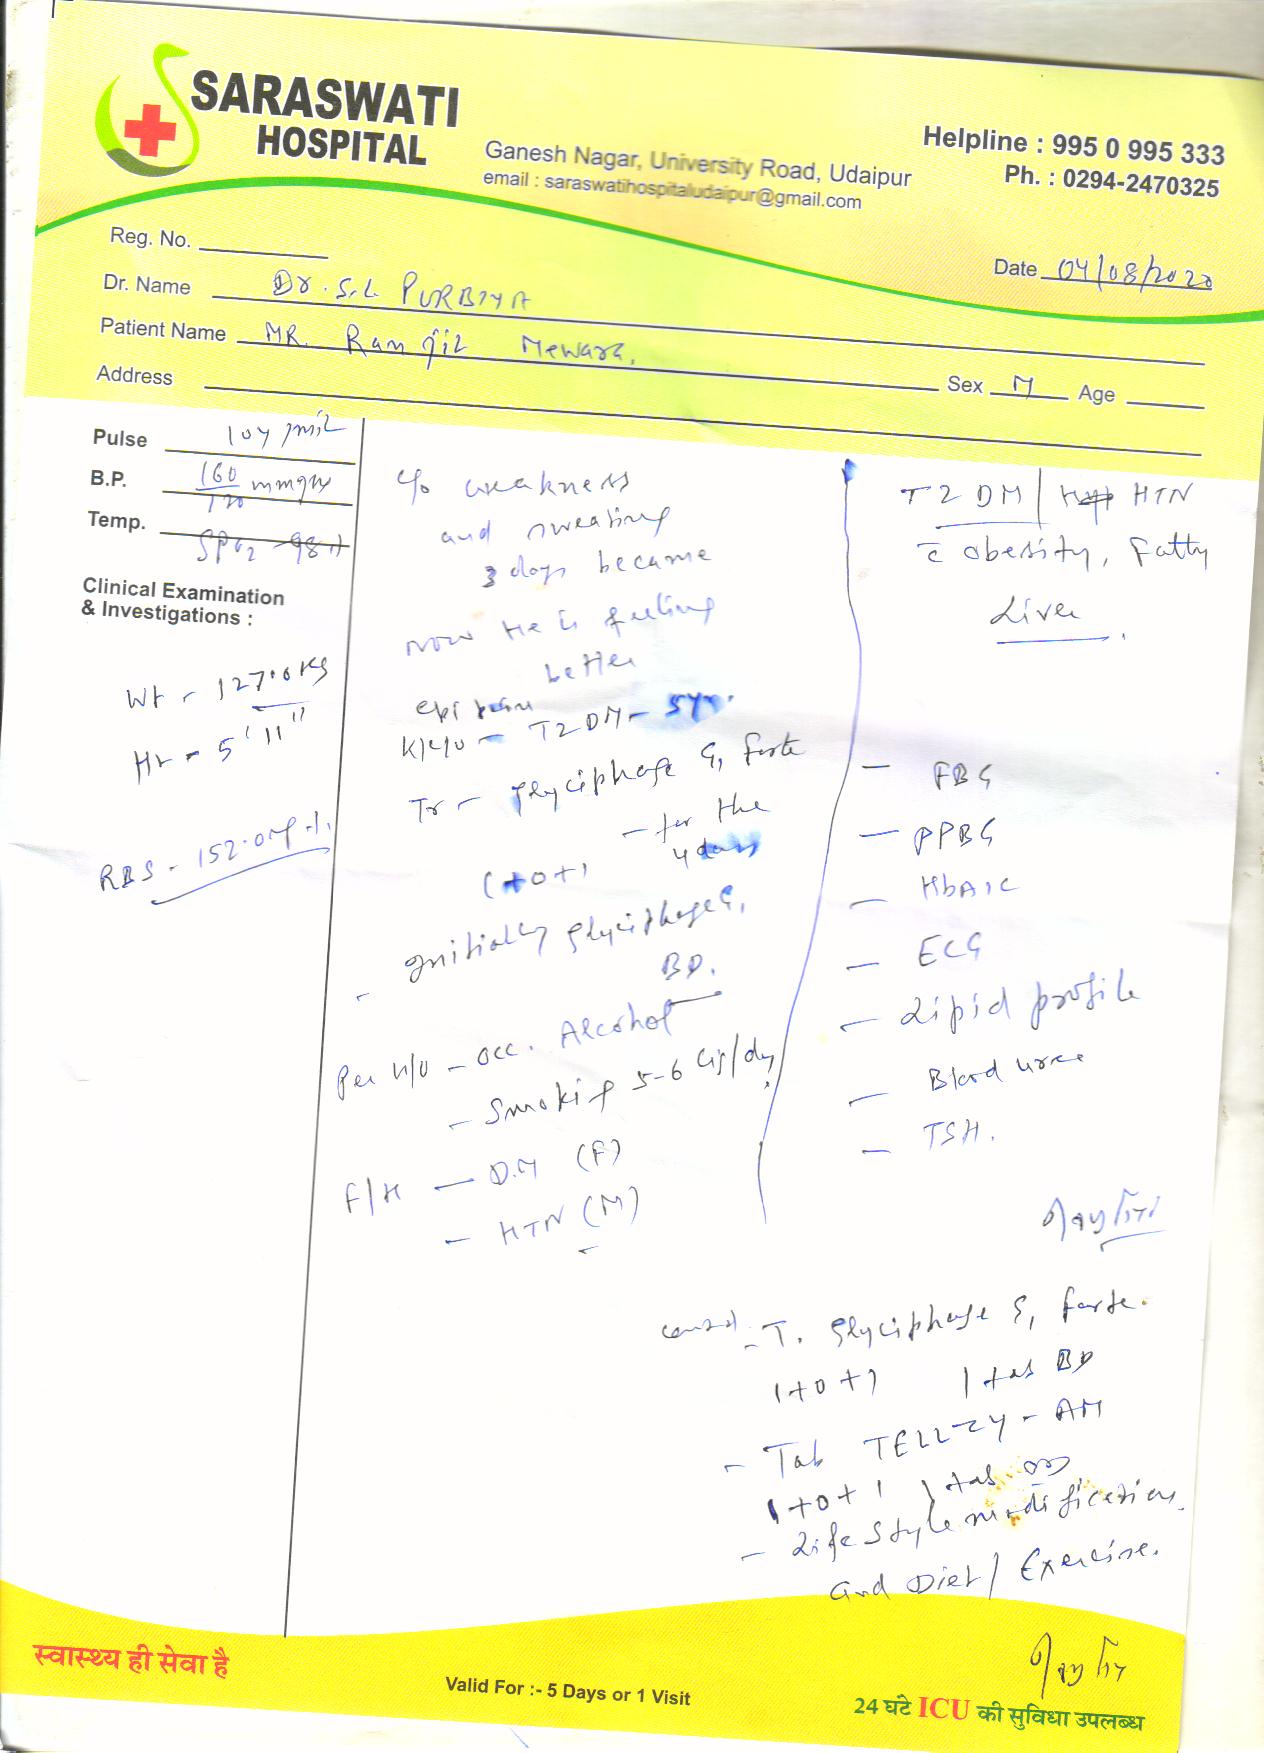 SARASWATI
HOSPITAL
Ganesh Nagar, University Road, Udaipur
email : saraswatihospitaludaipur@gmail.com
Helpline : 995 0 995 333
Ph. : 0294-2470325
Reg. No.
Date 04/08/2020
Dr. Name Dr. S.L PURBIYA
Patient Name MR. Ranjit Mewara.
Address
Sex M Age
Pulse 104
B.P. 160 mmHg
Temp.
SPO2 - 98 %
Clinical Examination
& Investigations :
Wt - 127.0 Kg
Ht - 5'11"
RBS - 152.0
c/o weakness
and sweating
3 days became
now He is feeling
better
K/c/o - T2DM - 5yr.
Tr - glyciphage G1 forte
- for the
4 days
1+0+1
- Initially glyciphage G1
BD.
Per H/O - occ. Alcohol
- Smoking 5-6 cig/day
F/H - D.M (F)
- HTN (M)
T2DM / HTN
c̄ obesity, Fatty
Liver.
- FBG
- PPBG
- HbA1C
- ECG
- Lipid profile
- Blood urea
- TSH.
- T. glyciphage G1 forte.
1+0+1 1 tab BD
- Tab TELLZY - AM
1+0+1 1 tab OD
- Life Style modification
and Diet / Exercise.
स्वास्थ्य ही सेवा है
Valid For :- 5 Days or 1 Visit
24 घंटे ICU की सुविधा उपलब्ध